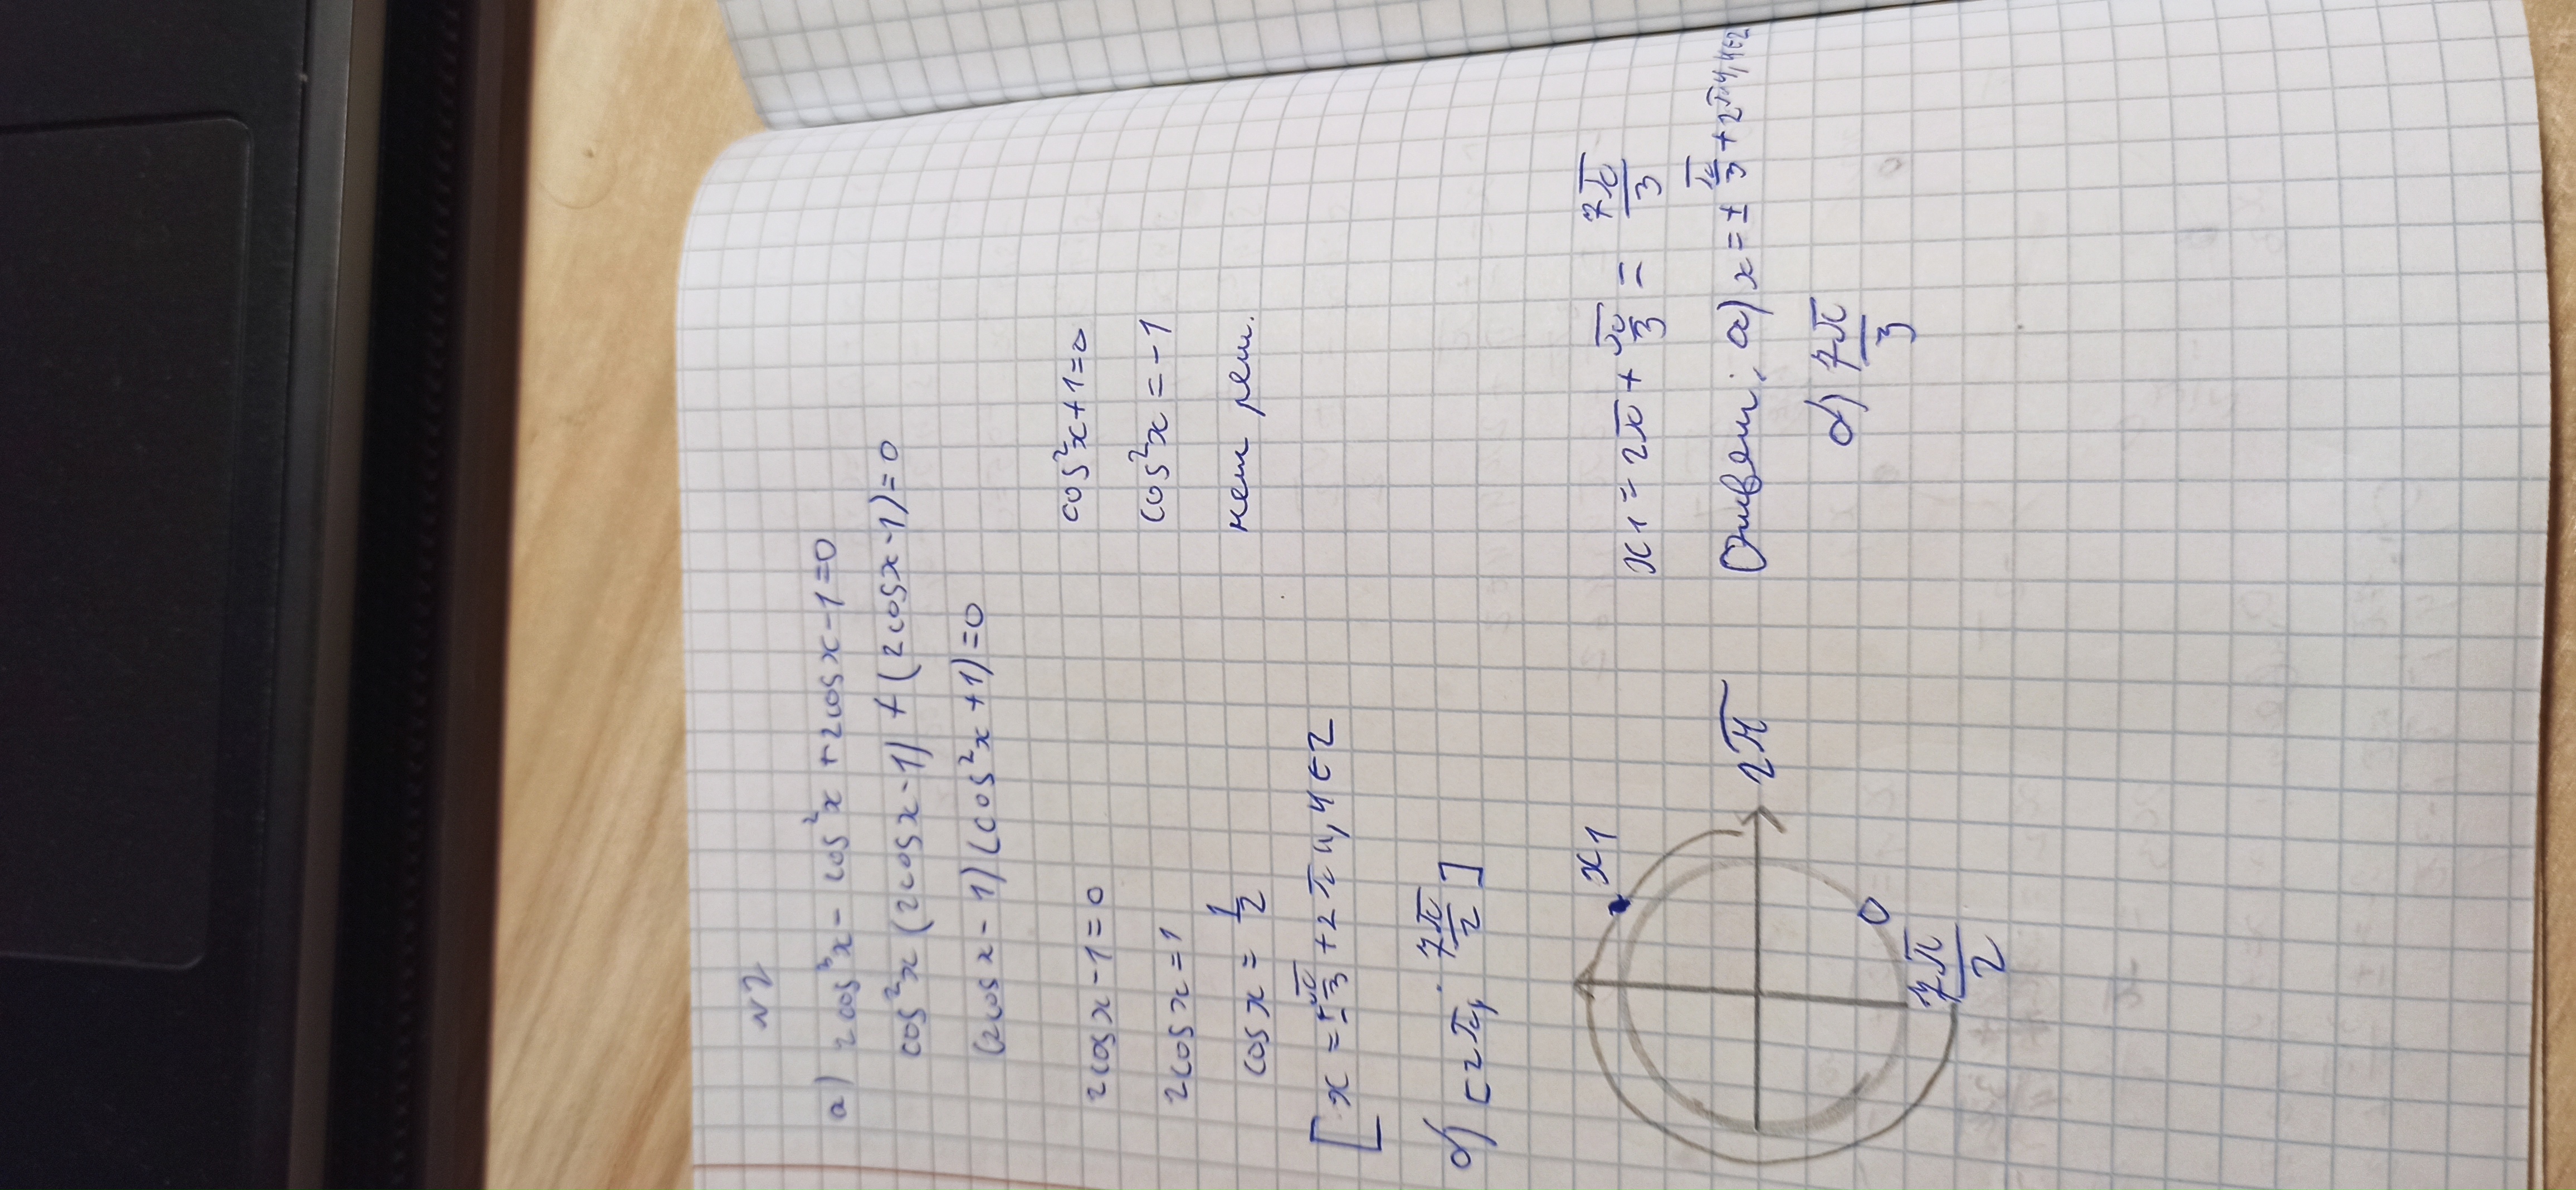 №2
а) 2cos³x - cos²x + 2cosx - 1 = 0
cos²x (2cosx - 1) + (2cosx - 1) = 0
(2cosx - 1)(cos²x + 1) = 0
2cosx - 1 = 0
2cosx = 1
cosx = 1/2
[ x = ±π/3 + 2πn, n ∈ Z
cos²x + 1 = 0
cos²x = -1
нет реш.
б) [2π; 7π/2]
x1
2π
7π/2
x1 = 2π + π/3 = 7π/3
Ответ: а) x = ± π/3 + 2πn, n ∈ Z
б) 7π/3